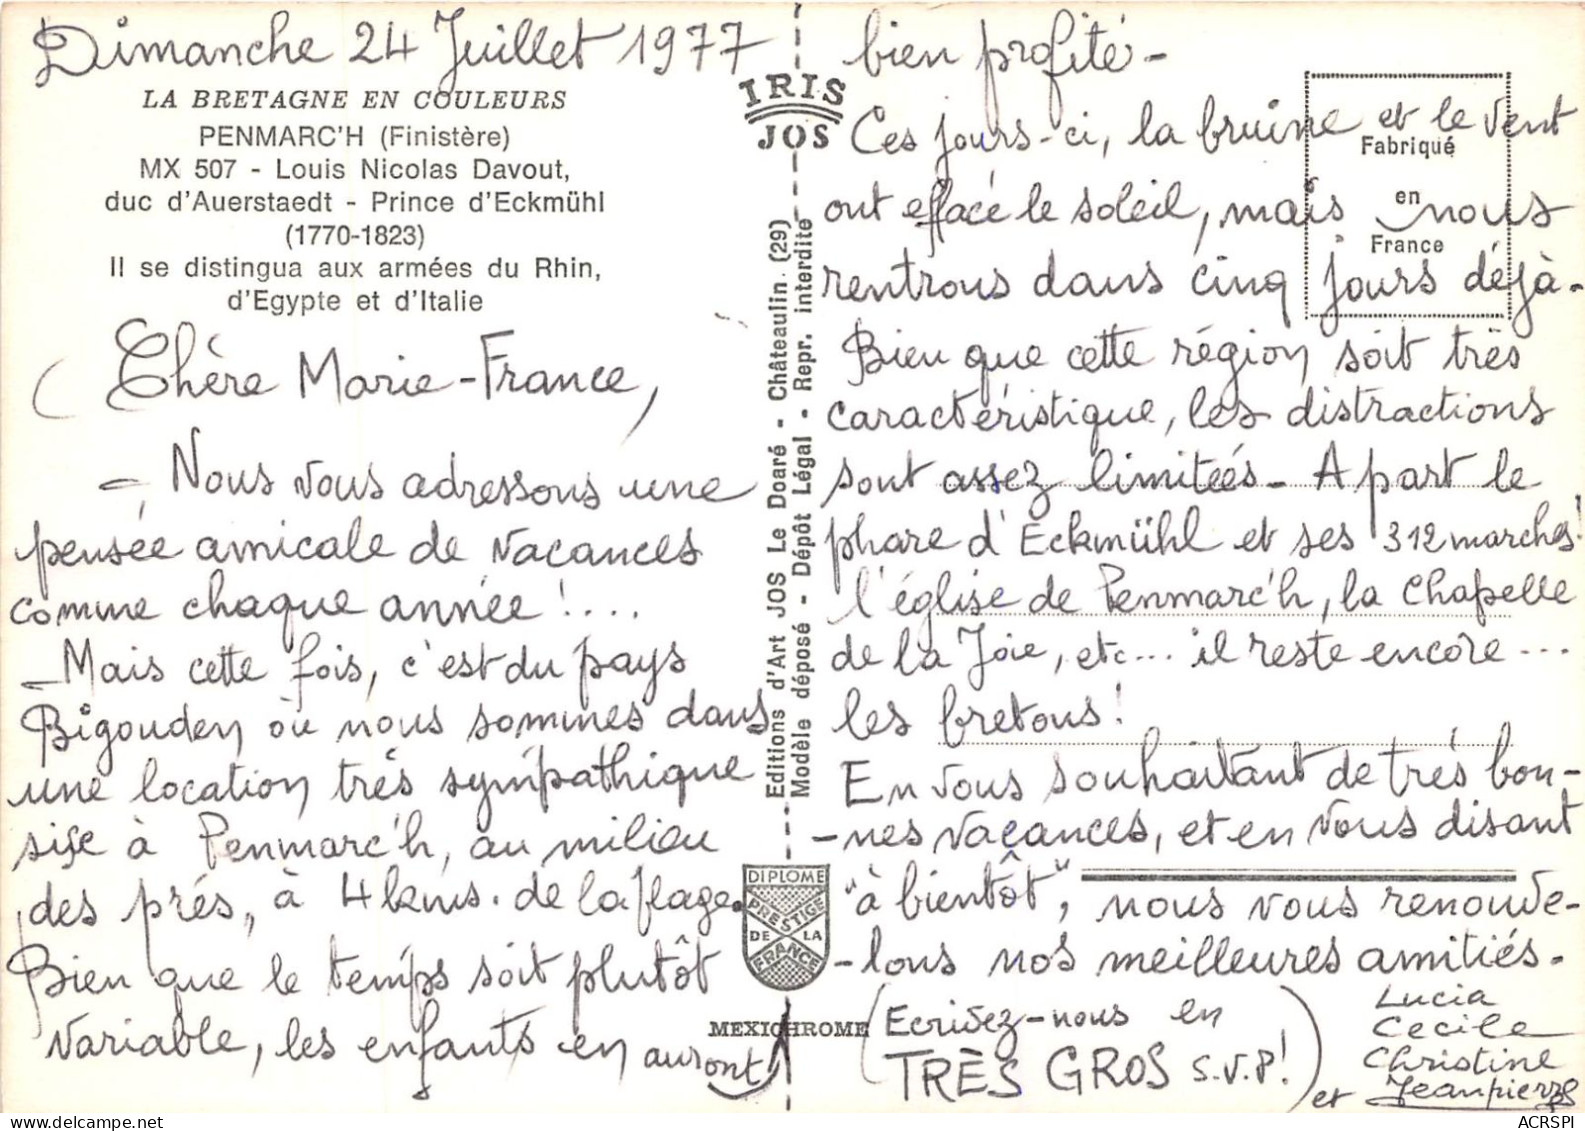 Dimanche 24 Juillet 1977
LA BRETAGNE EN COULEURS
PENMARC'H (Finistère)
MX 507 - Louis Nicolas Davout,
duc d'Auerstaedt - Prince d'Eckmühl
(1770-1823)
Il se distingua aux armées du Rhin,
d'Egypte et d'Italie
Chère Marie-France,
- Nous vous adressons une
pensée amicale de vacances
comme chaque année !....
- Mais cette fois, c'est du pays
Bigouden où nous sommes dans
une location très sympathique
sise à Penmarc'h, au milieu
des prés, à 4 kms. de la plage.
Bien que le temps soit plutôt
variable, les enfants en auront
IRIS
JOS
Editions d'Art JOS Le Doaré - Châteaulin (29)
Modèle déposé - Dépôt Légal • Repr. interdite
DIPLOME
PRESTIGE
DE LA
FRANCE
MEXICHROME
bien profité -
Fabriqué
en
France
Ces jours-ci, la bruine et le vent
ont effacé le soleil, mais nous
rentrons dans cinq jours déjà.
Bien que cette région soit très
caractéristique, les distractions
sont assez limitées - A part le
phare d'Eckmühl et ses 312 marches!
l'église de Penmarc'h, la Chapelle
de la Joie, etc... il reste encore...
les bretons !
En vous souhaitant de très bon-
-nes vacances, et en vous disant
"à bientôt", nous vous renouve-
-lons nos meilleures amitiés.
(Ecrivez-nous en
TRÈS GROS s.v.p!)
Lucia
Cecile
Christine
et Jeanpierre
ACRSPI